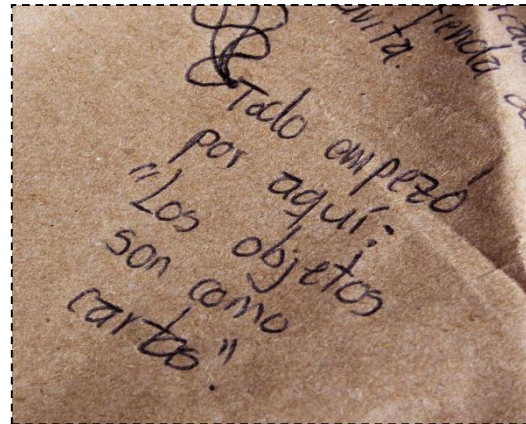 tienda
Todo empezó
por aquí:
"Los objetos
son como
cartas".